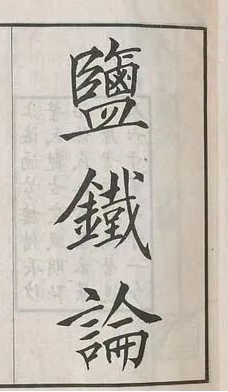 鹽鐵論